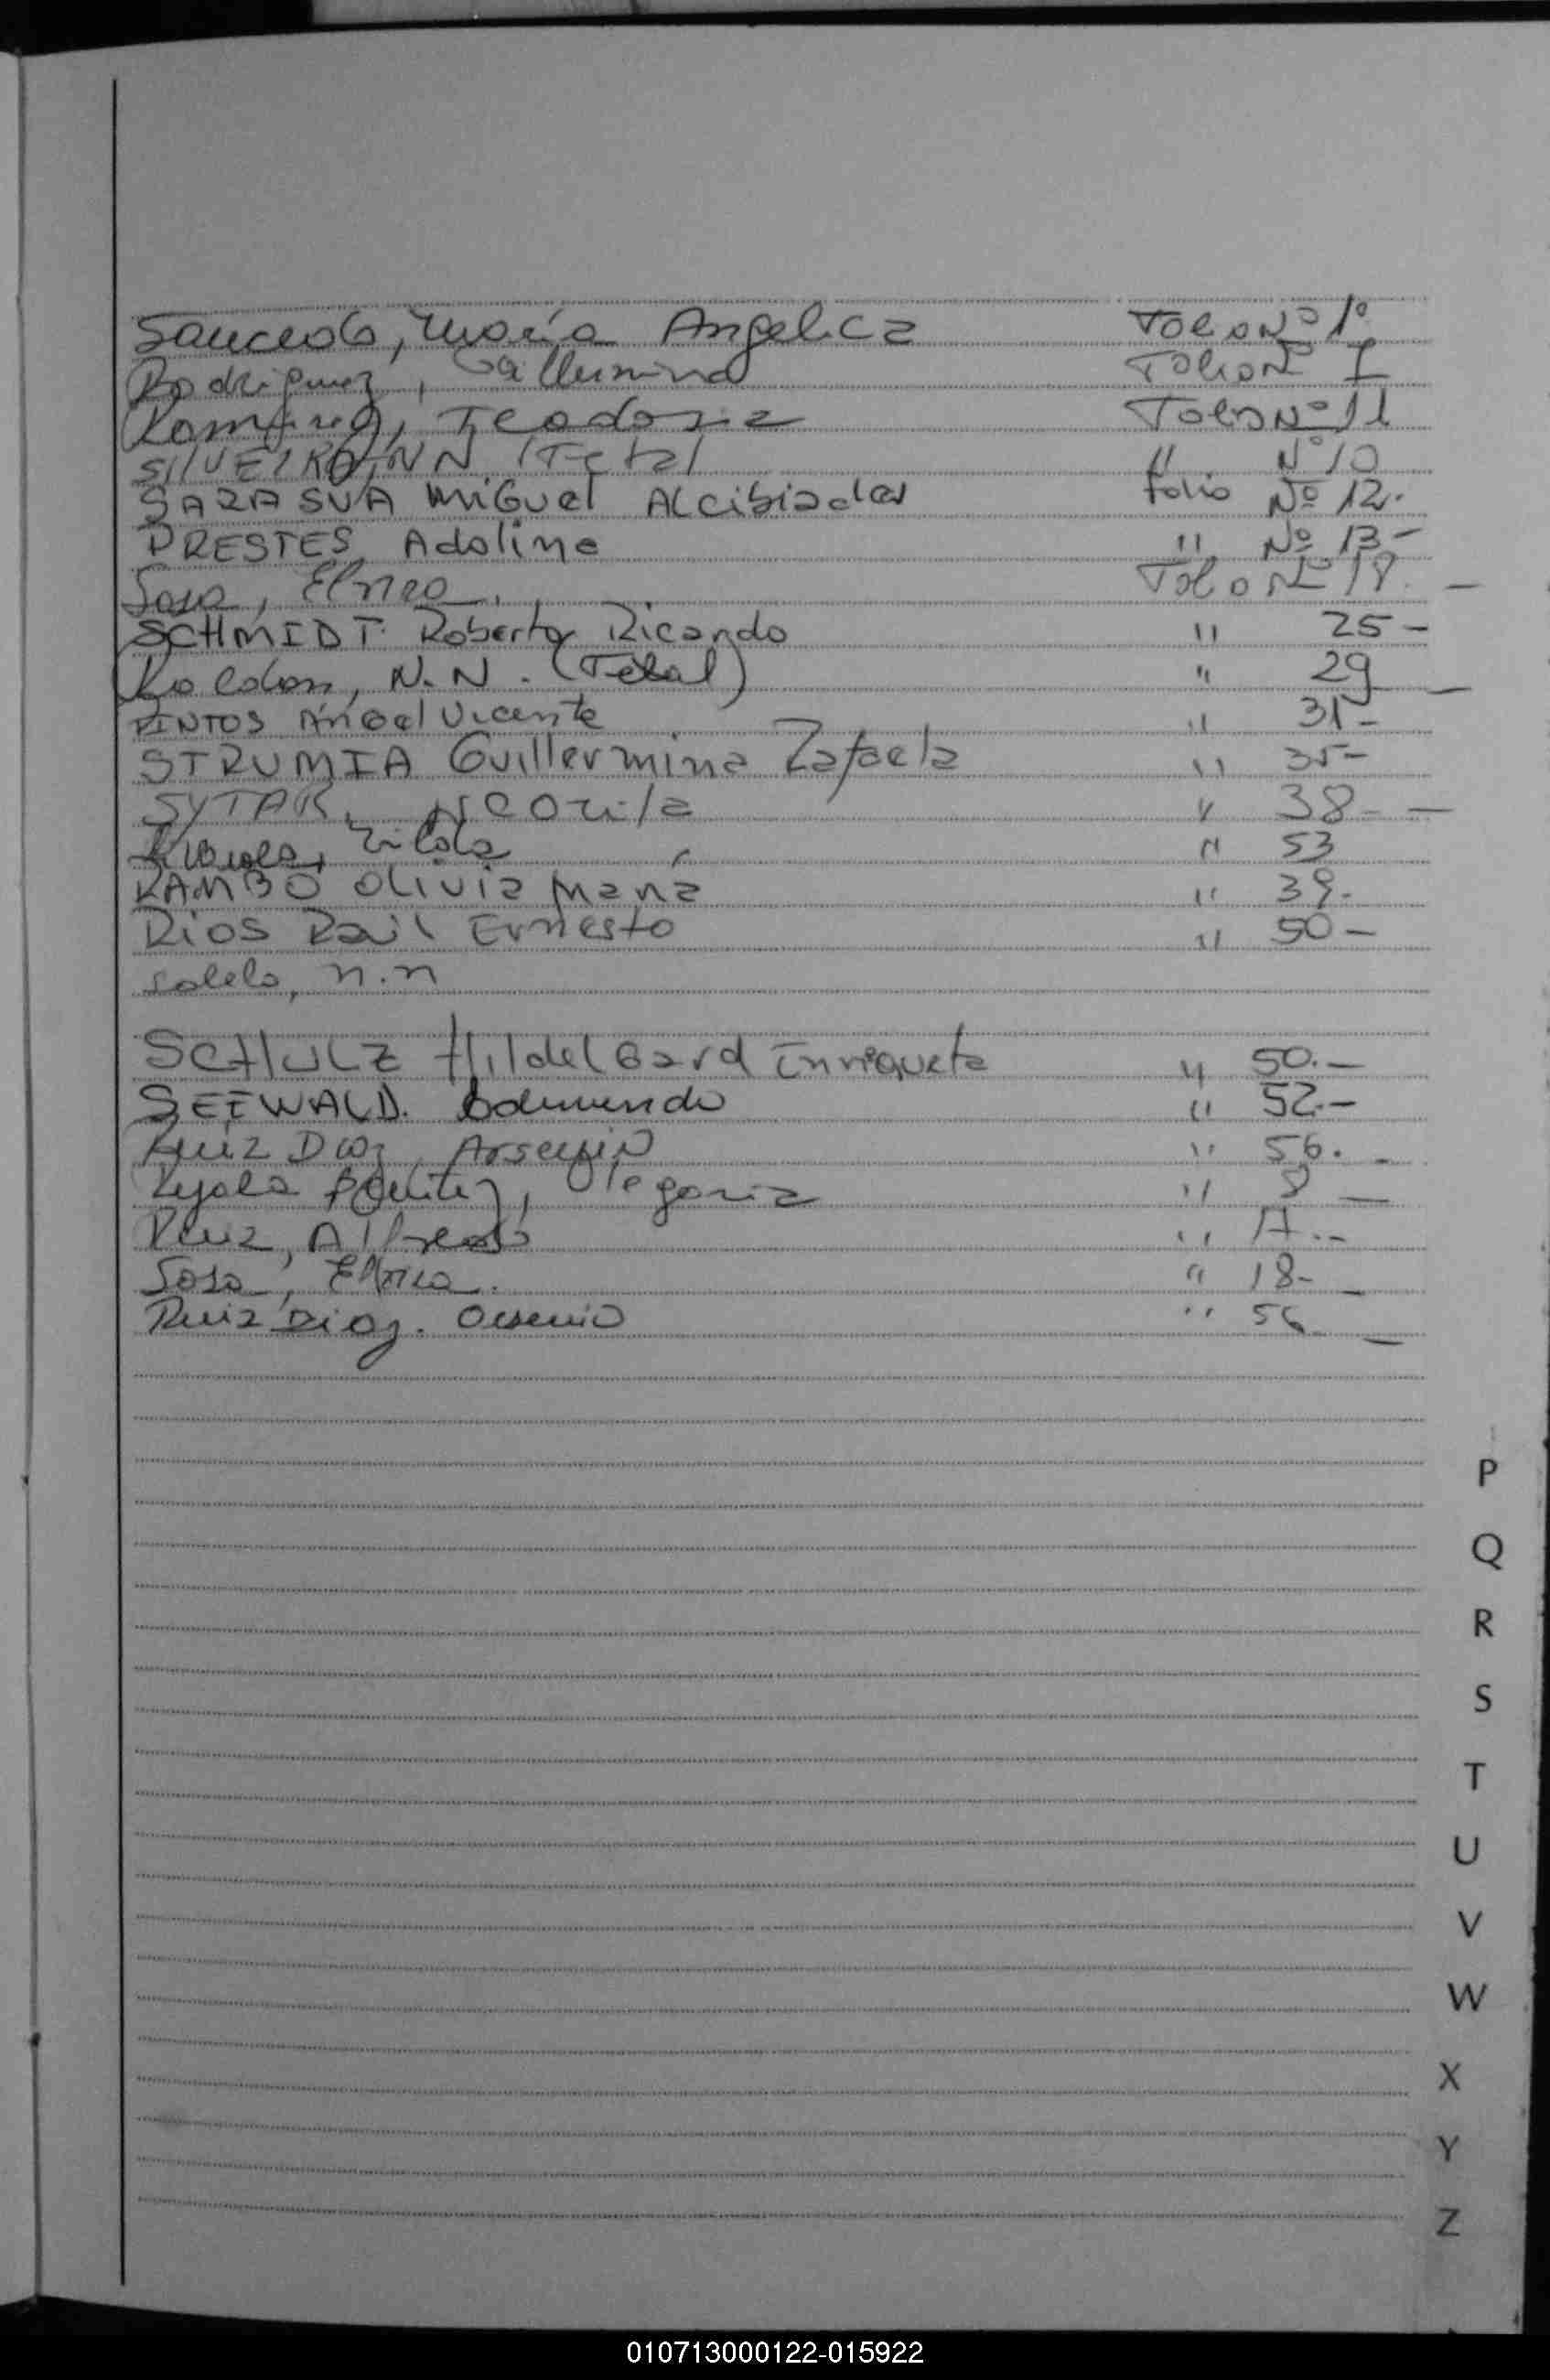 Saucedo, María Angelica Folio Nº 1º
Rodriguez, Guillermina Folio Nº I
Ramirez, Teodora Folio Nº 11
SILVEIRA, NN (Fetal " Nº 10
SARASUA MiGuel ALcibiades folio Nº 12.
PRESTES, Adolina " Nº 13-
Sosa, Folio Nº 18. -
SCHMIDT. Roberto Ricardo " 25-
Rocdon, N.N. (Fetal) " 29 -
PINTOS AnGel Vicente " 31-
STRUMIA Guillermina Rafaela " 35-
SYTAR, " 38- -
" 53
RAMBO OLIVIA María " 39.
Rios Raúl Ernesto " 50-
Sotelo, n.n
SCHULZ HildelGard Enriqueta " 50.-
SEEWALD. Edmundo " 52.-
Ruiz Diaz, Arsenio " 56. -
Benitez, Olegaria " 8 -
Ruiz, Alfredo "
Sosa, " 18- -
Ruiz Diaz. Arsenio " 56 -
P
Q
R
S
T
U
V
W
X
Y
Z
010713000122-015922